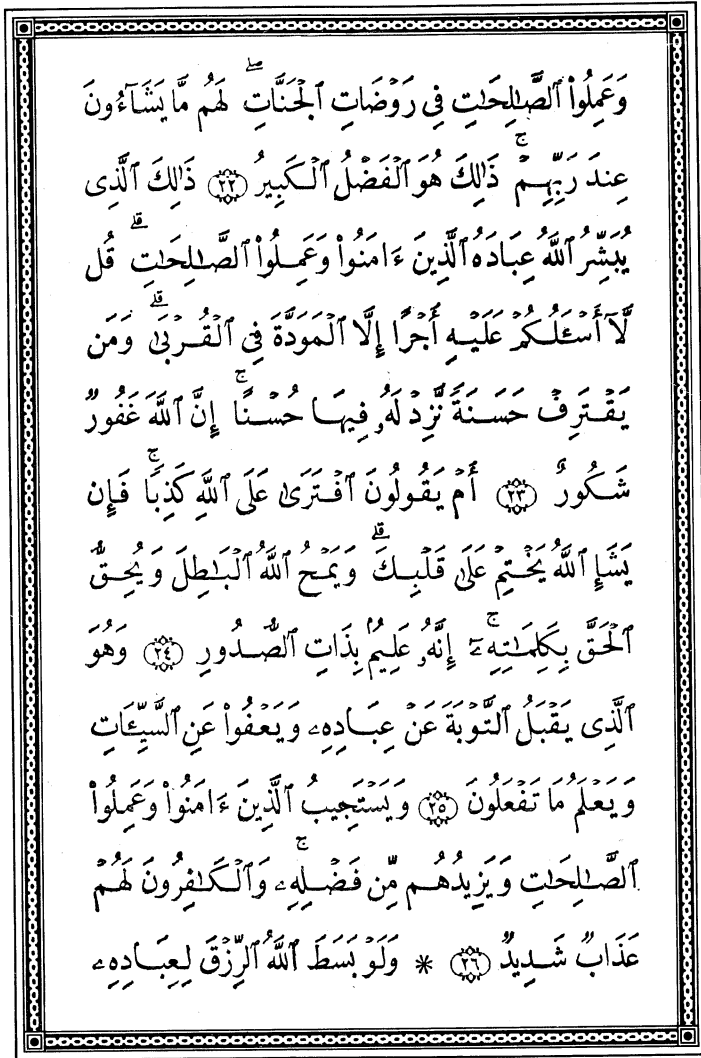 وَعَمِلُوا۟ ٱلصَّٰلِحَٰتِ فِى رَوْضَاتِ ٱلْجَنَّاتِ ۖ لَهُم مَّا يَشَآءُونَ
عِندَ رَبِّهِمْ ۚ ذَٰلِكَ هُوَ ٱلْفَضْلُ ٱلْكَبِيرُ ۝٢٢ ذَٰلِكَ ٱلَّذِى
يُبَشِّرُ ٱللَّهُ عِبَادَهُ ٱلَّذِينَ ءَامَنُوا۟ وَعَمِلُوا۟ ٱلصَّٰلِحَٰتِ ۗ قُل
لَّآ أَسْـَٔلُكُمْ عَلَيْهِ أَجْرًا إِلَّا ٱلْمَوَدَّةَ فِى ٱلْقُرْبَىٰ ۗ وَمَن
يَقْتَرِفْ حَسَنَةً نَّزِدْ لَهُۥ فِيهَا حُسْنًا ۚ إِنَّ ٱللَّهَ غَفُورٌ
شَكُورٌ ۝٢٣ أَمْ يَقُولُونَ ٱفْتَرَىٰ عَلَى ٱللَّهِ كَذِبًا ۖ فَإِن
يَشَإِ ٱللَّهُ يَخْتِمْ عَلَىٰ قَلْبِكَ ۗ وَيَمْحُ ٱللَّهُ ٱلْبَٰطِلَ وَيُحِقُّ
ٱلْحَقَّ بِكَلِمَٰتِهِۦٓ ۚ إِنَّهُۥ عَلِيمٌۢ بِذَاتِ ٱلصُّدُورِ ۝٢٤ وَهُوَ
ٱلَّذِى يَقْبَلُ ٱلتَّوْبَةَ عَنْ عِبَادِهِۦ وَيَعْفُوا۟ عَنِ ٱلسَّيِّـَٔاتِ
وَيَعْلَمُ مَا تَفْعَلُونَ ۝٢٥ وَيَسْتَجِيبُ ٱلَّذِينَ ءَامَنُوا۟ وَعَمِلُوا۟
ٱلصَّٰلِحَٰتِ وَيَزِيدُهُم مِّن فَضْلِهِۦ ۚ وَٱلْكَٰفِرُونَ لَهُمْ
عَذَابٌ شَدِيدٌ ۝٢٦ * وَلَوْ بَسَطَ ٱللَّهُ ٱلرِّزْقَ لِعِبَادِهِۦ